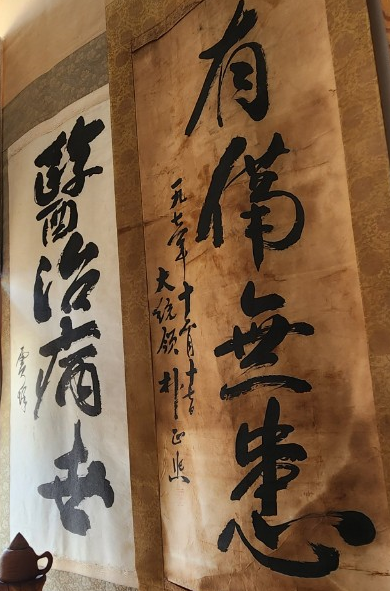 有備無患
一九七年十月十七日
大統領 朴正熙
醫治病世
雲